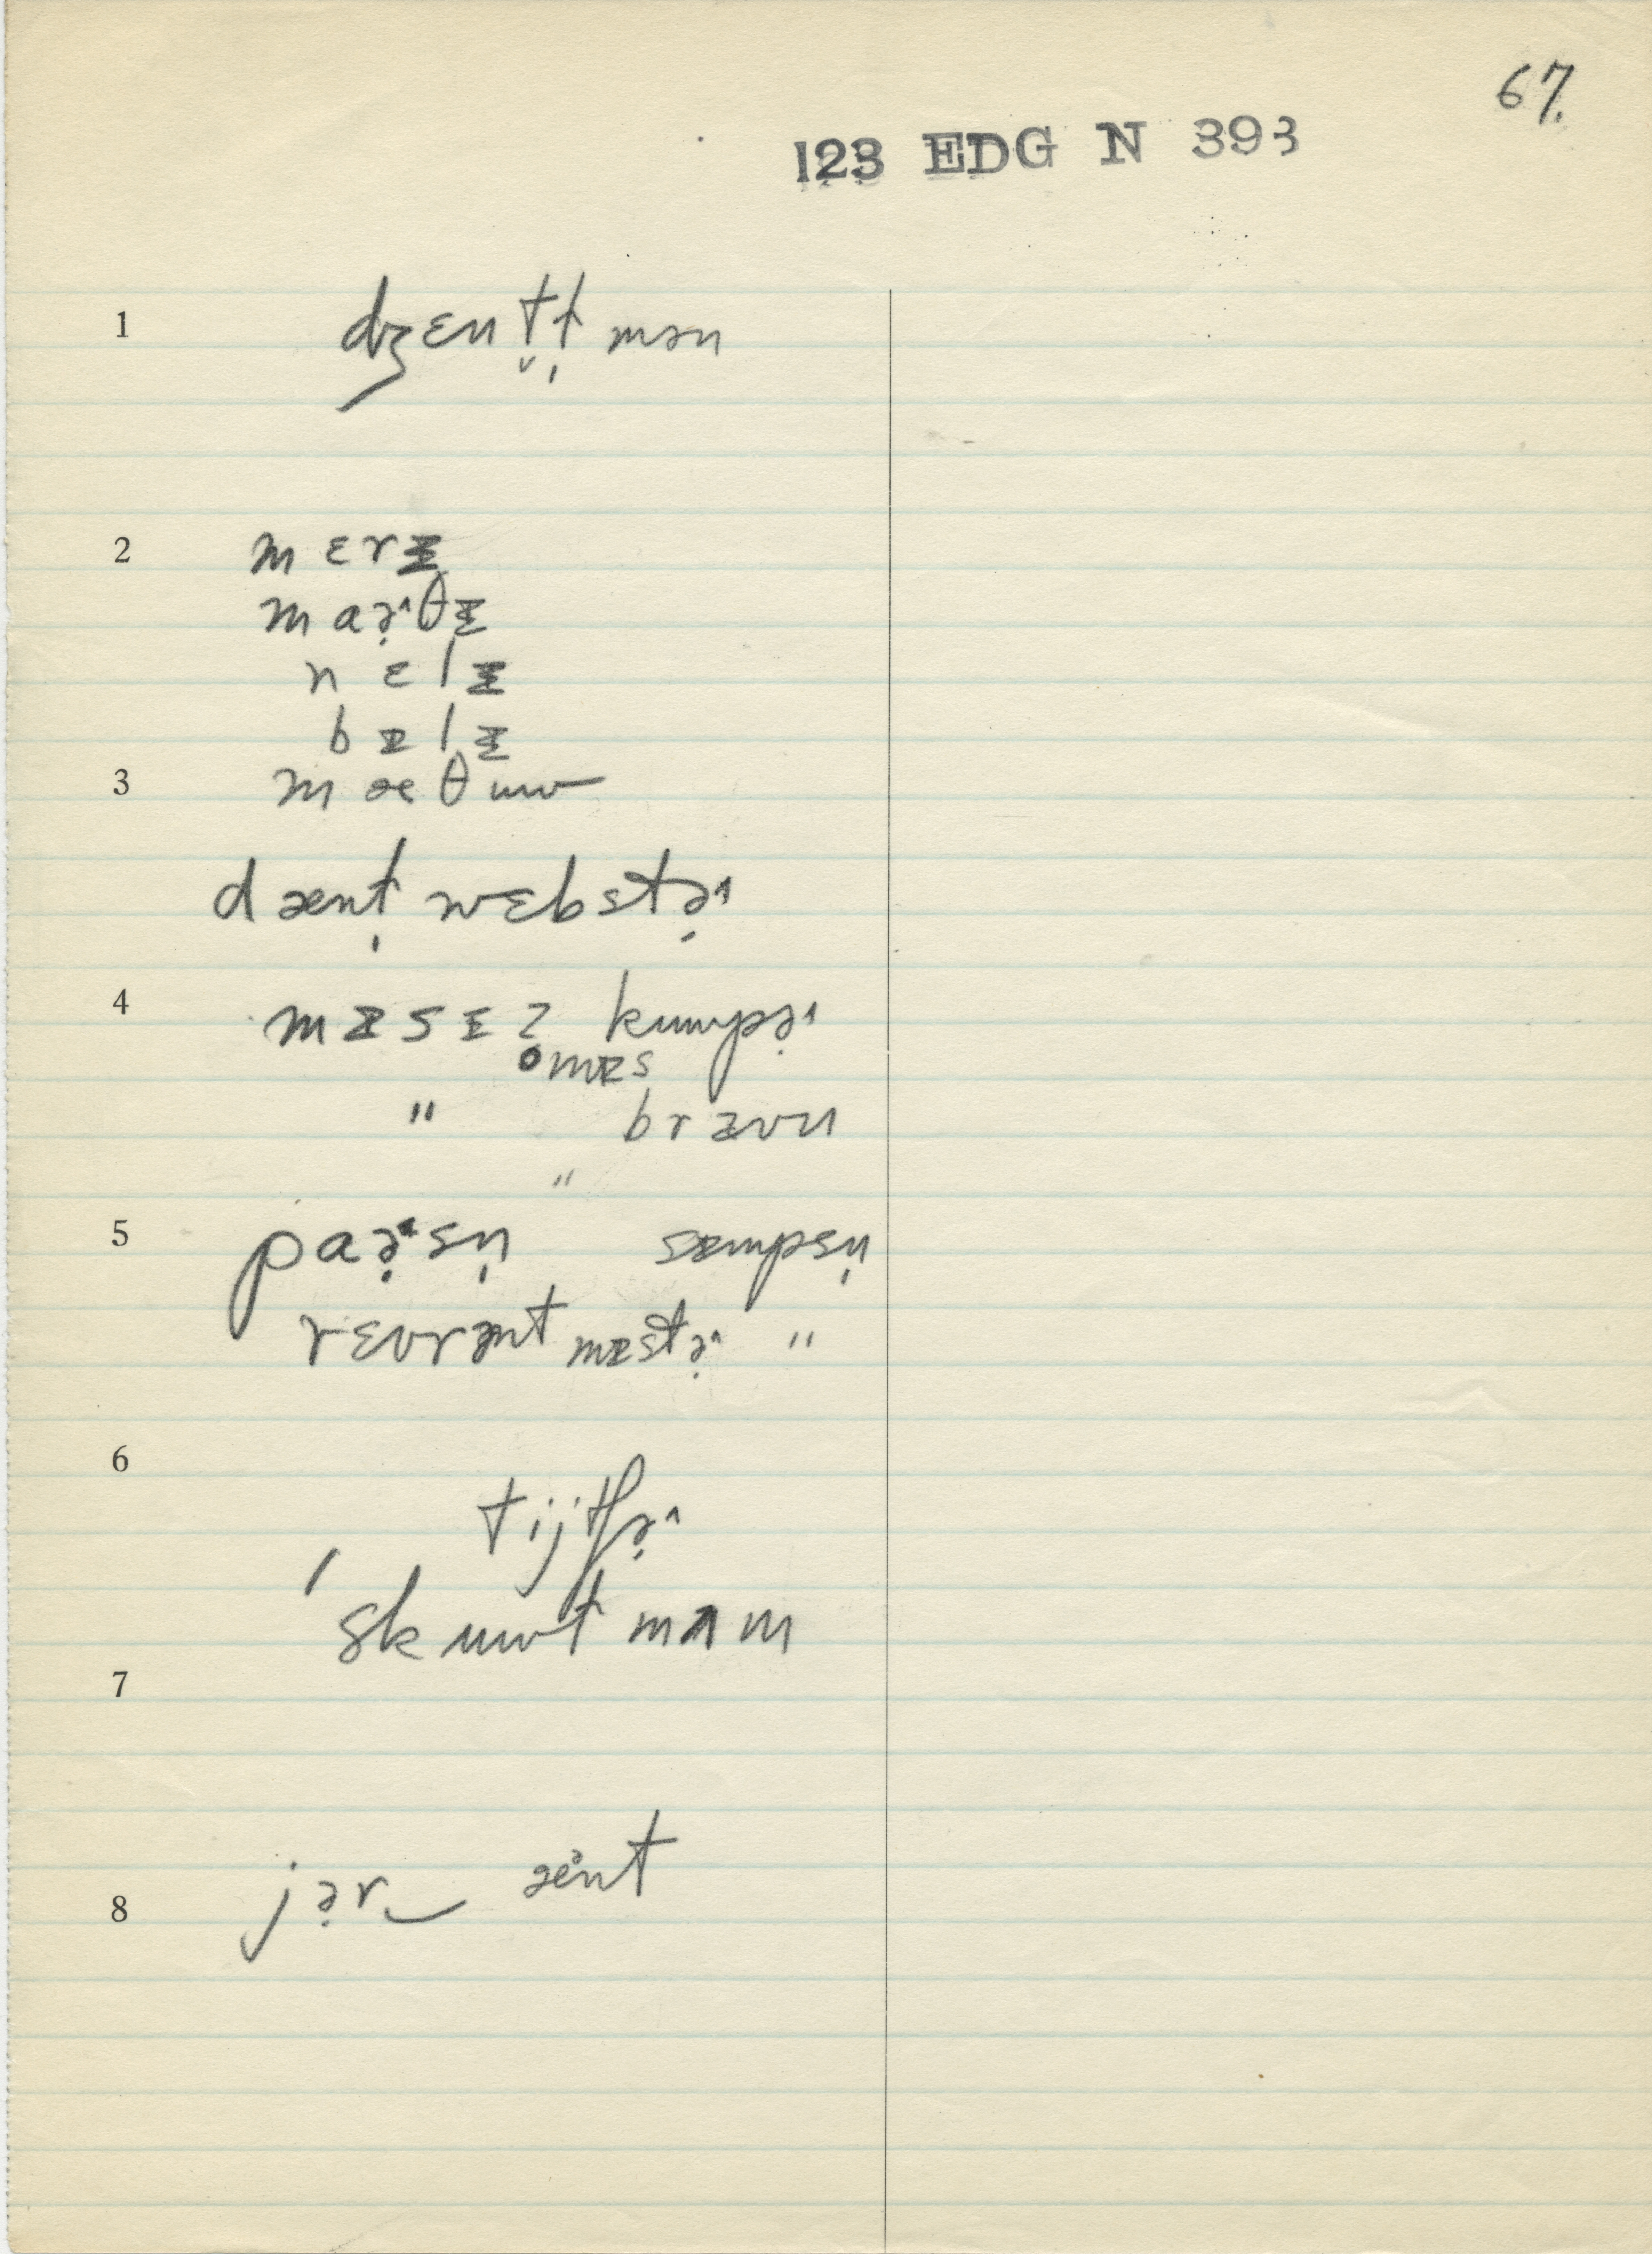 67.
123 EDG N 393
1 dʒɛnt̬l̩mən
2 mɛrɪ
maə̣˞θɪ
nɛlɪ
bɪlɪ
3 mæθɪuw
dænl̩ wɛbstə̣˞
4 mɪsɪz̥ kuwpə̣˞
mɪs
" bræʊn
"
5 paə̣˞sn̩ sɪmpsn̩
rɛvrənt mɪstə̣˞ "
6 tijtʃə̣˞
ˈskuwlmæm
7
8 jər‿ænt